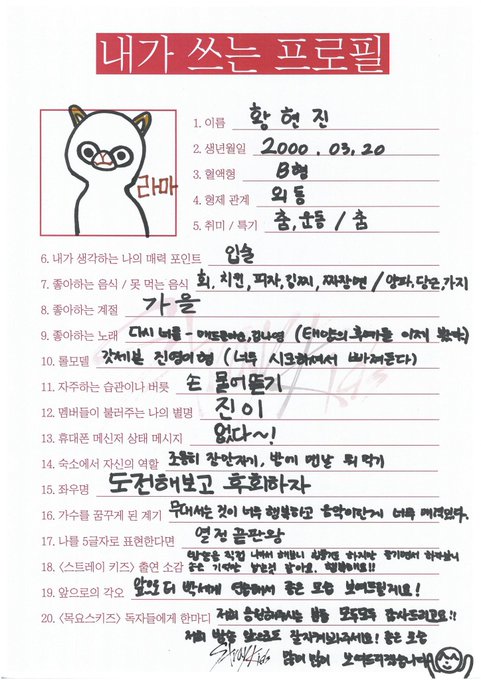 내가 쓰는 프로필
라마
1. 이름 황현진
2. 생년월일 2000.03.20
3. 혈액형 B형
4. 형제 관계 외동
5. 취미 / 특기 춤, 운동 / 춤
6. 내가 생각하는 나의 매력 포인트 입술
7. 좋아하는 음식 / 못 먹는 음식 회, 치킨, 피자, 김찌, 짜장면 / 양파, 당근, 가지
8. 좋아하는 계절 가을
9. 좋아하는 노래 다시 너를 - 매드클라운, 김나영 (태양의후예를 이제 봤다)
10. 롤모델 갓제본 진영이형 (너무 시크하셔서 빠져든다)
11. 자주하는 습관이나 버릇 손 물어뜯기
12. 멤버들이 불러주는 나의 별명 진이
13. 휴대폰 메신저 상태 메시지 없다~!
14. 숙소에서 자신의 역할 조용히 잠만자기, 밤에 맨날 뭐 먹기
15. 좌우명 도전해보고 후회하자
16. 가수를 꿈꾸게 된 계기 무대서는 것이 너무 행복하고 음악이란게 너무 매력있다.
17. 나를 5글자로 표현한다면 열정끝판왕
18. <스트레이 키즈> 출연 소감 방송을 직접 나와서 해보니 힘들기도 하지만 즐기면서 하다보니
좋은 기억만 남은것 같아요. 행복해요!!
19. 앞으로의 각오 앞으로 더 박세게 연습해서 좋은 모습 보여드릴게요!
20. <목요스키즈> 독자들에게 한마디 저희 응원해주시는 분들 모두모두 감사드리고요!!
저희 방송 앞으로도 잘지켜봐주세요! 좋은 모습
많이 많이 보여드리겠습니다
Stray Kids